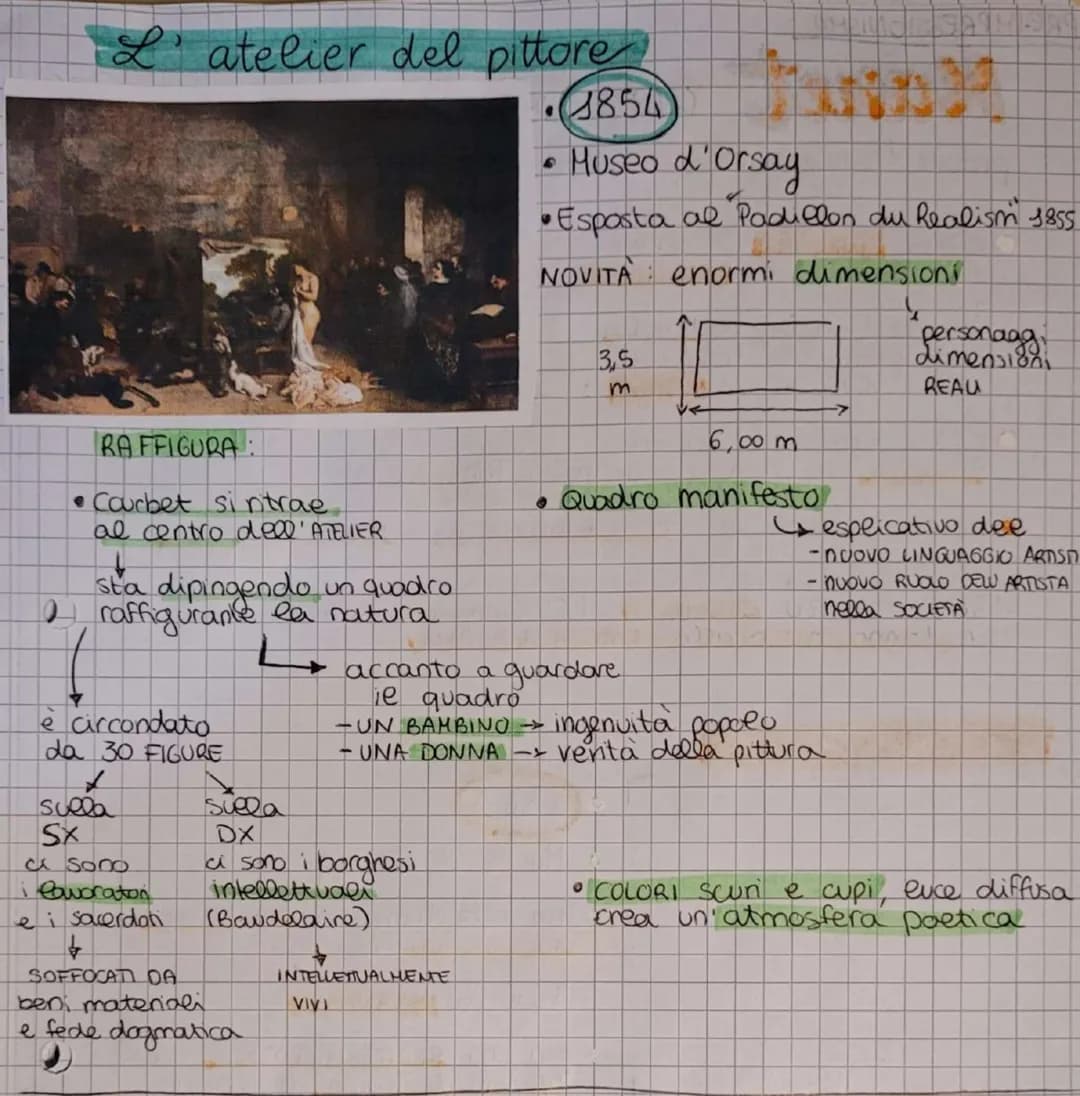 L'atelier del pittore
• 1854
• Museo d'Orsay
• Esposta al "Padiellon du Realism" 1855
NOVITÀ: enormi dimensioni
personaggi
dimensioni
REALI
3,5
m
6,00 m
RAFFIGURA:
• Courbet si ritrae
al centro dell'ATELIER
sta dipingendo un quadro
raffigurante la natura
• Quadro manifesto
↳ esplicativo del
- NUOVO LINGUAGGIO ARTIST
- NUOVO RUOLO DELL'ARTISTA
nella SOCIETÀ
accanto a guardare
il quadro
- UN BAMBINO → ingenuità popolo
- UNA DONNA → verità della pittura
è circondato
da 30 FIGURE
sulla
SX
ci sono
i lavoratori
e i sacerdoti
SOFFOCATI DA
beni materiali
e fede dogmatica
sulla
DX
ci sono i borghesi
intellettuali
(Baudelaire)
INTELLETTUALMENTE
VIVI
• COLORI scuri e cupi, luce diffusa
crea un'atmosfera poetica